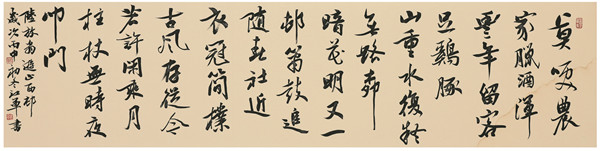 莫咲農
家臘酒渾
豐年留客
足鷄豚
山重水復疑
無路柳
暗花明又一
邨簫鼓追
隨春社近
衣冠簡樸
古風存從今
若許閑乘月
拄杖無時夜
叩門
陸放翁遊山西邨
歲次丙申初冬書